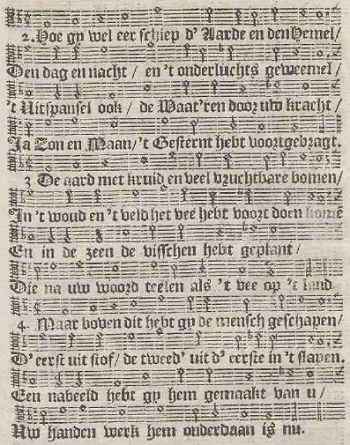 2. Hoe gy wel eer schiep d' Aarde en den Hemel/
Den dag en nacht / en 't onderluchts geweemel /
't Uitspansel ook / de Waat'ren door uw kracht /
Ja Zon en Maan / 't Gesternt hebt voortgebragt.
3 De aard met kruid en veel vruchtbare bomen/
In 't woud en 't veld het vee hebt voort doen komē
En in de zeen de visschen hebt geplant /
Die na uw woord teelen als 't vee op 't land.
4. Maar boven dit hebt gy de mensch geschapen/
D' eerst uit stof / de tweed' uit d' eerste in 't slapen.
Een nabeeld hebt gy hem gemaakt van u /
Uw handen werk hem onderdaan is nu.